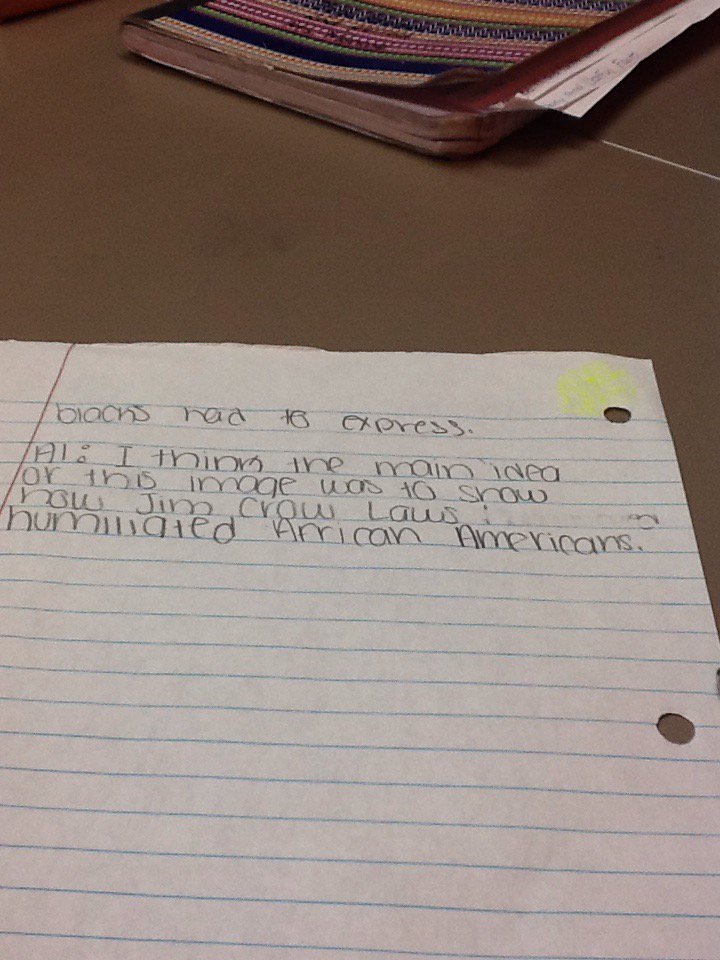 blacks had to express.
AI: I think the main idea
of this image was to show
how Jim Crow Laws
humiliated African Americans.